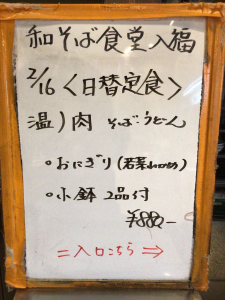 和そば食堂入福
2/16 <日替定食>
温)肉 そばうどん
○おにぎり(若菜
○小鉢 2品付
¥880-
＝入口こちら⇒